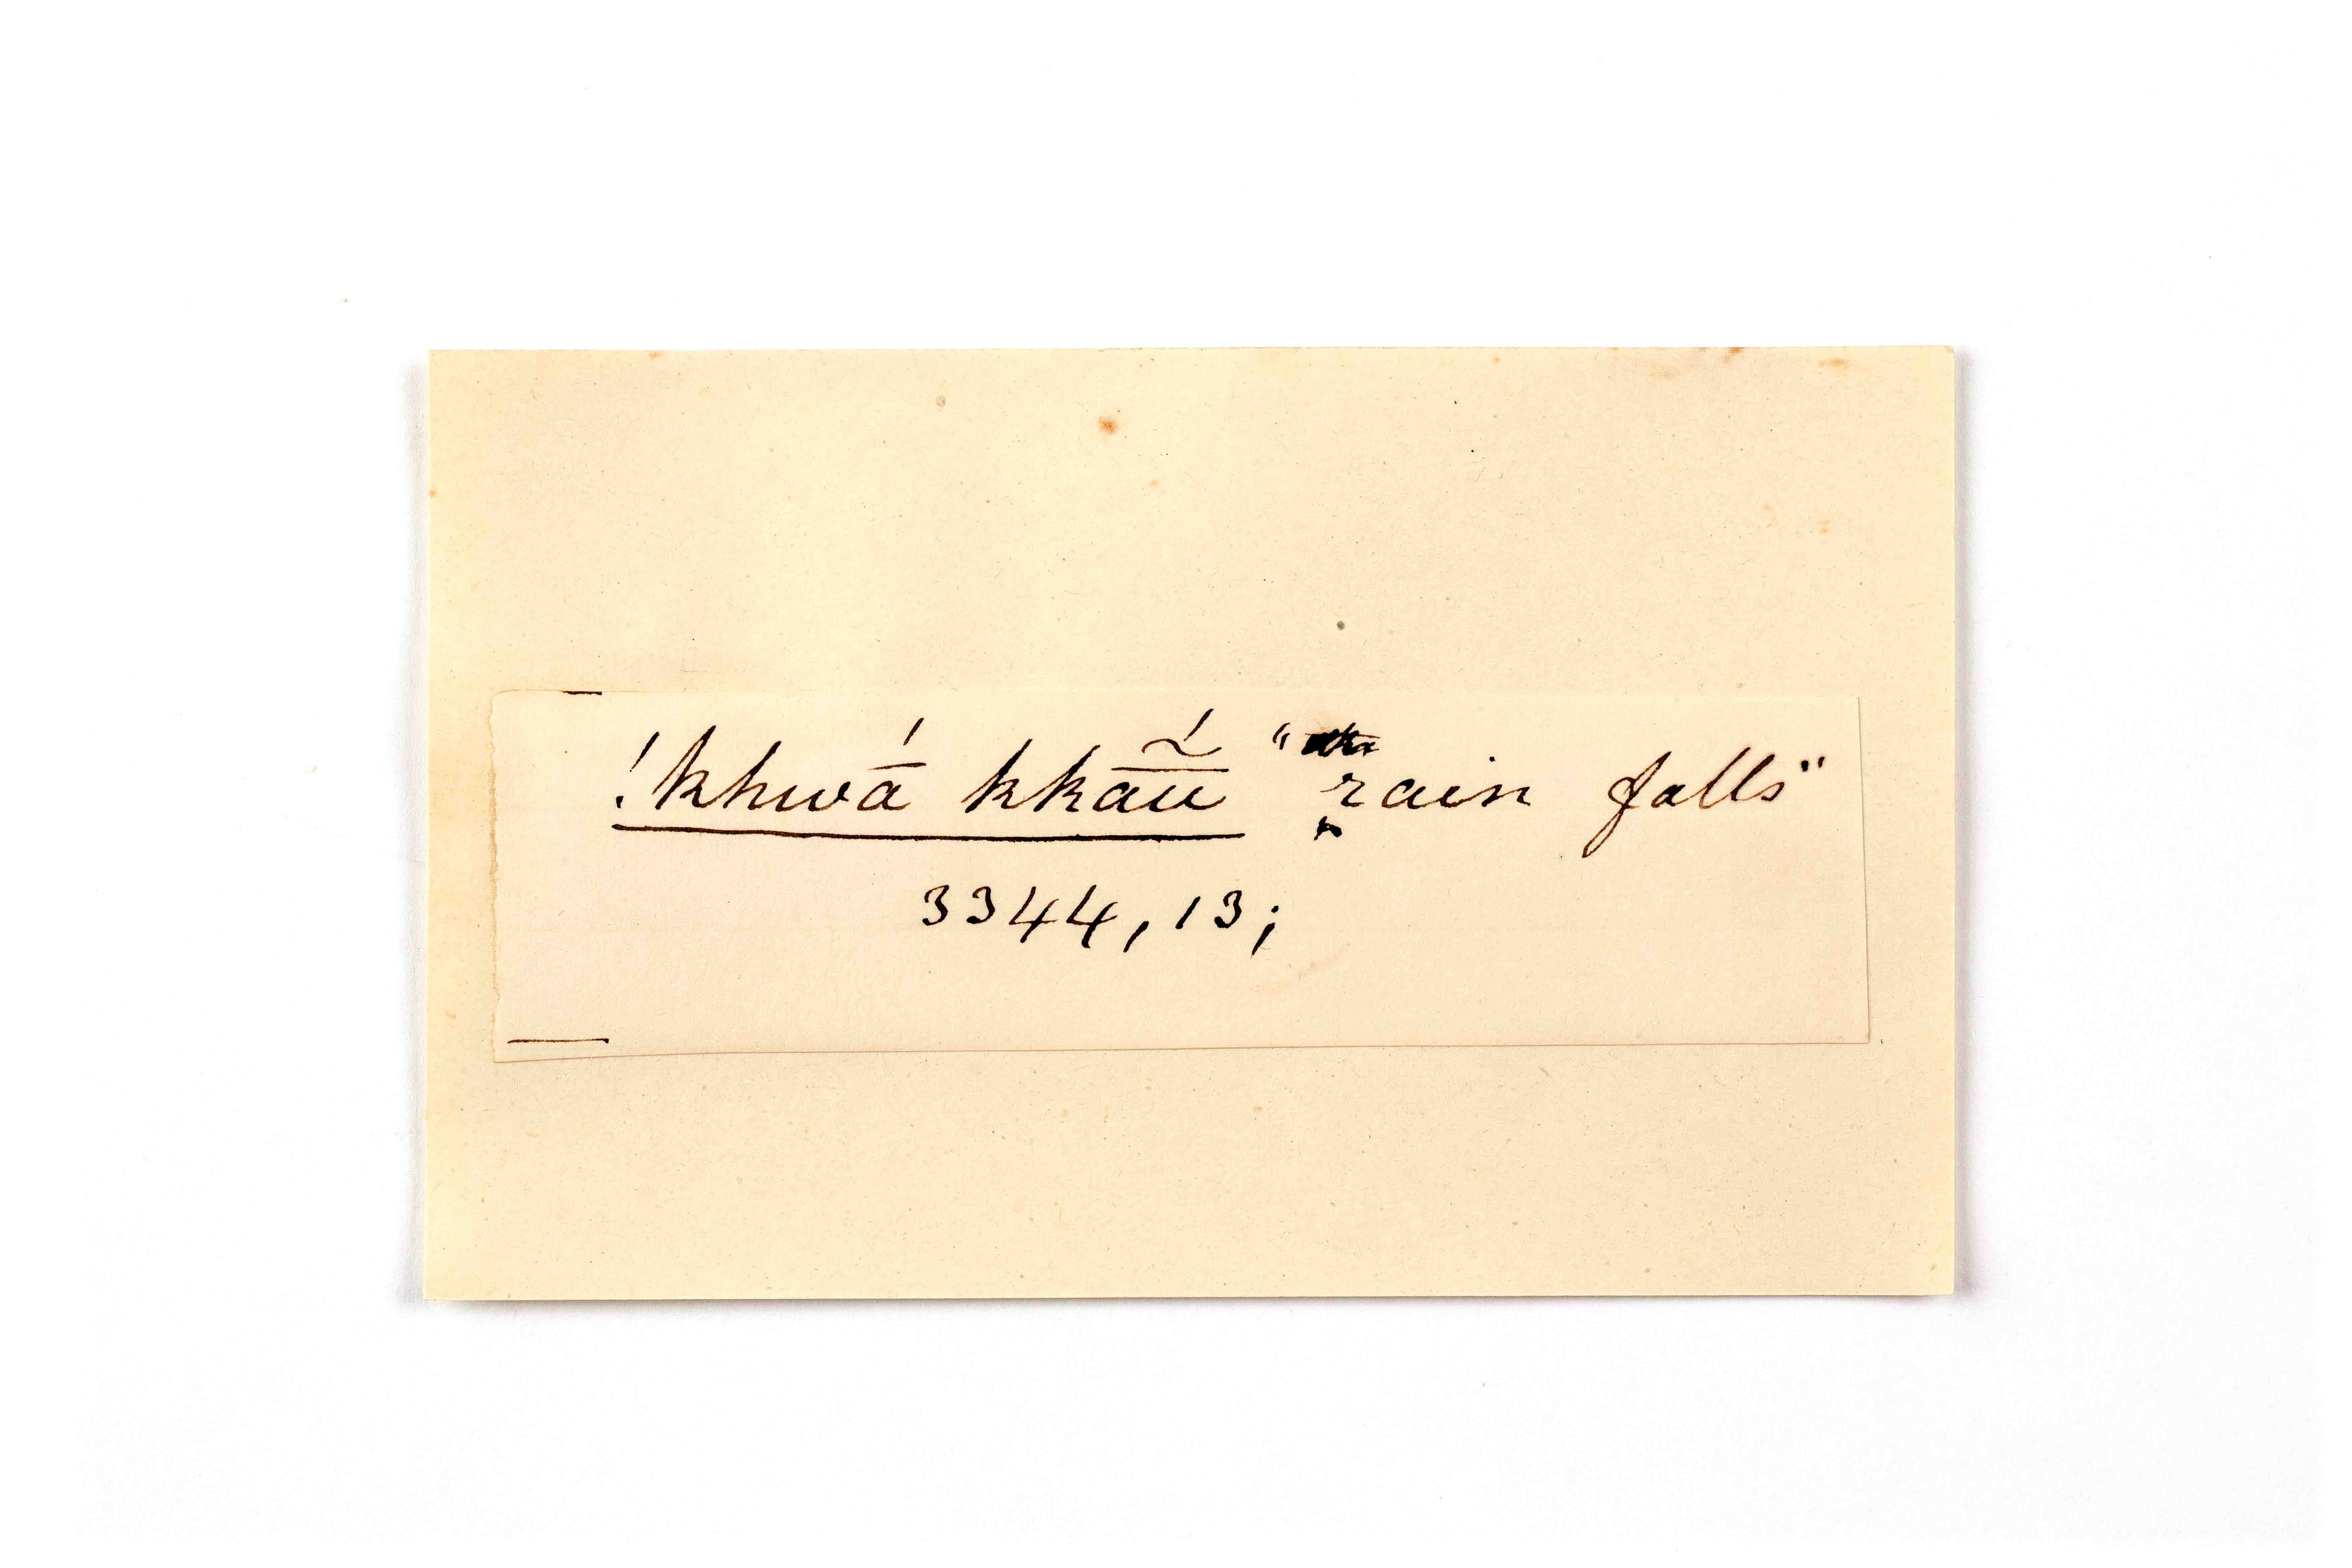 !khwā́ kkā̃́ū "rain falls"
3344, 13;